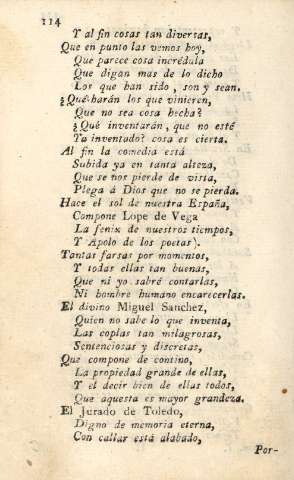 114
Y al fin cosas tan diversas,
Que en punto las vemos hoy,
Que parece cosa incrédula
Que digan mas de lo dicho
Los que han sido, son y sean.
¿Qué harán los que vinieren,
Que no sea cosa hecha?
¿Qué inventarán, que no esté
Ya inventado? cosa es cierta.
Al fin la comedia está
Subida ya en tanta alteza,
Que se nos pierde de vista,
Plega á Dios que no se pierda.
Hace el sol de nuestra España,
Compone Lope de Vega
La fenix de nuestros tiempos,
Y Apolo de los poetas).
Tantas farsas por momentos,
Y todas ellas tan buenas,
Que ni yo sabré contarlas,
Ni hombre humano encarecerlas.
El divino Miguel Sanchez,
Quien no sabe lo que inventa,
Las coplas tan milagrosas,
Sentenciosas y discretas,
Que compone de contino,
La propiedad grande de ellas,
Y el decir bien de ellas todos,
Que aquesta es mayor grandeza.
El Jurado de Toledo,
Digno de memoria eterna,
Con callar está alabado,
Por-